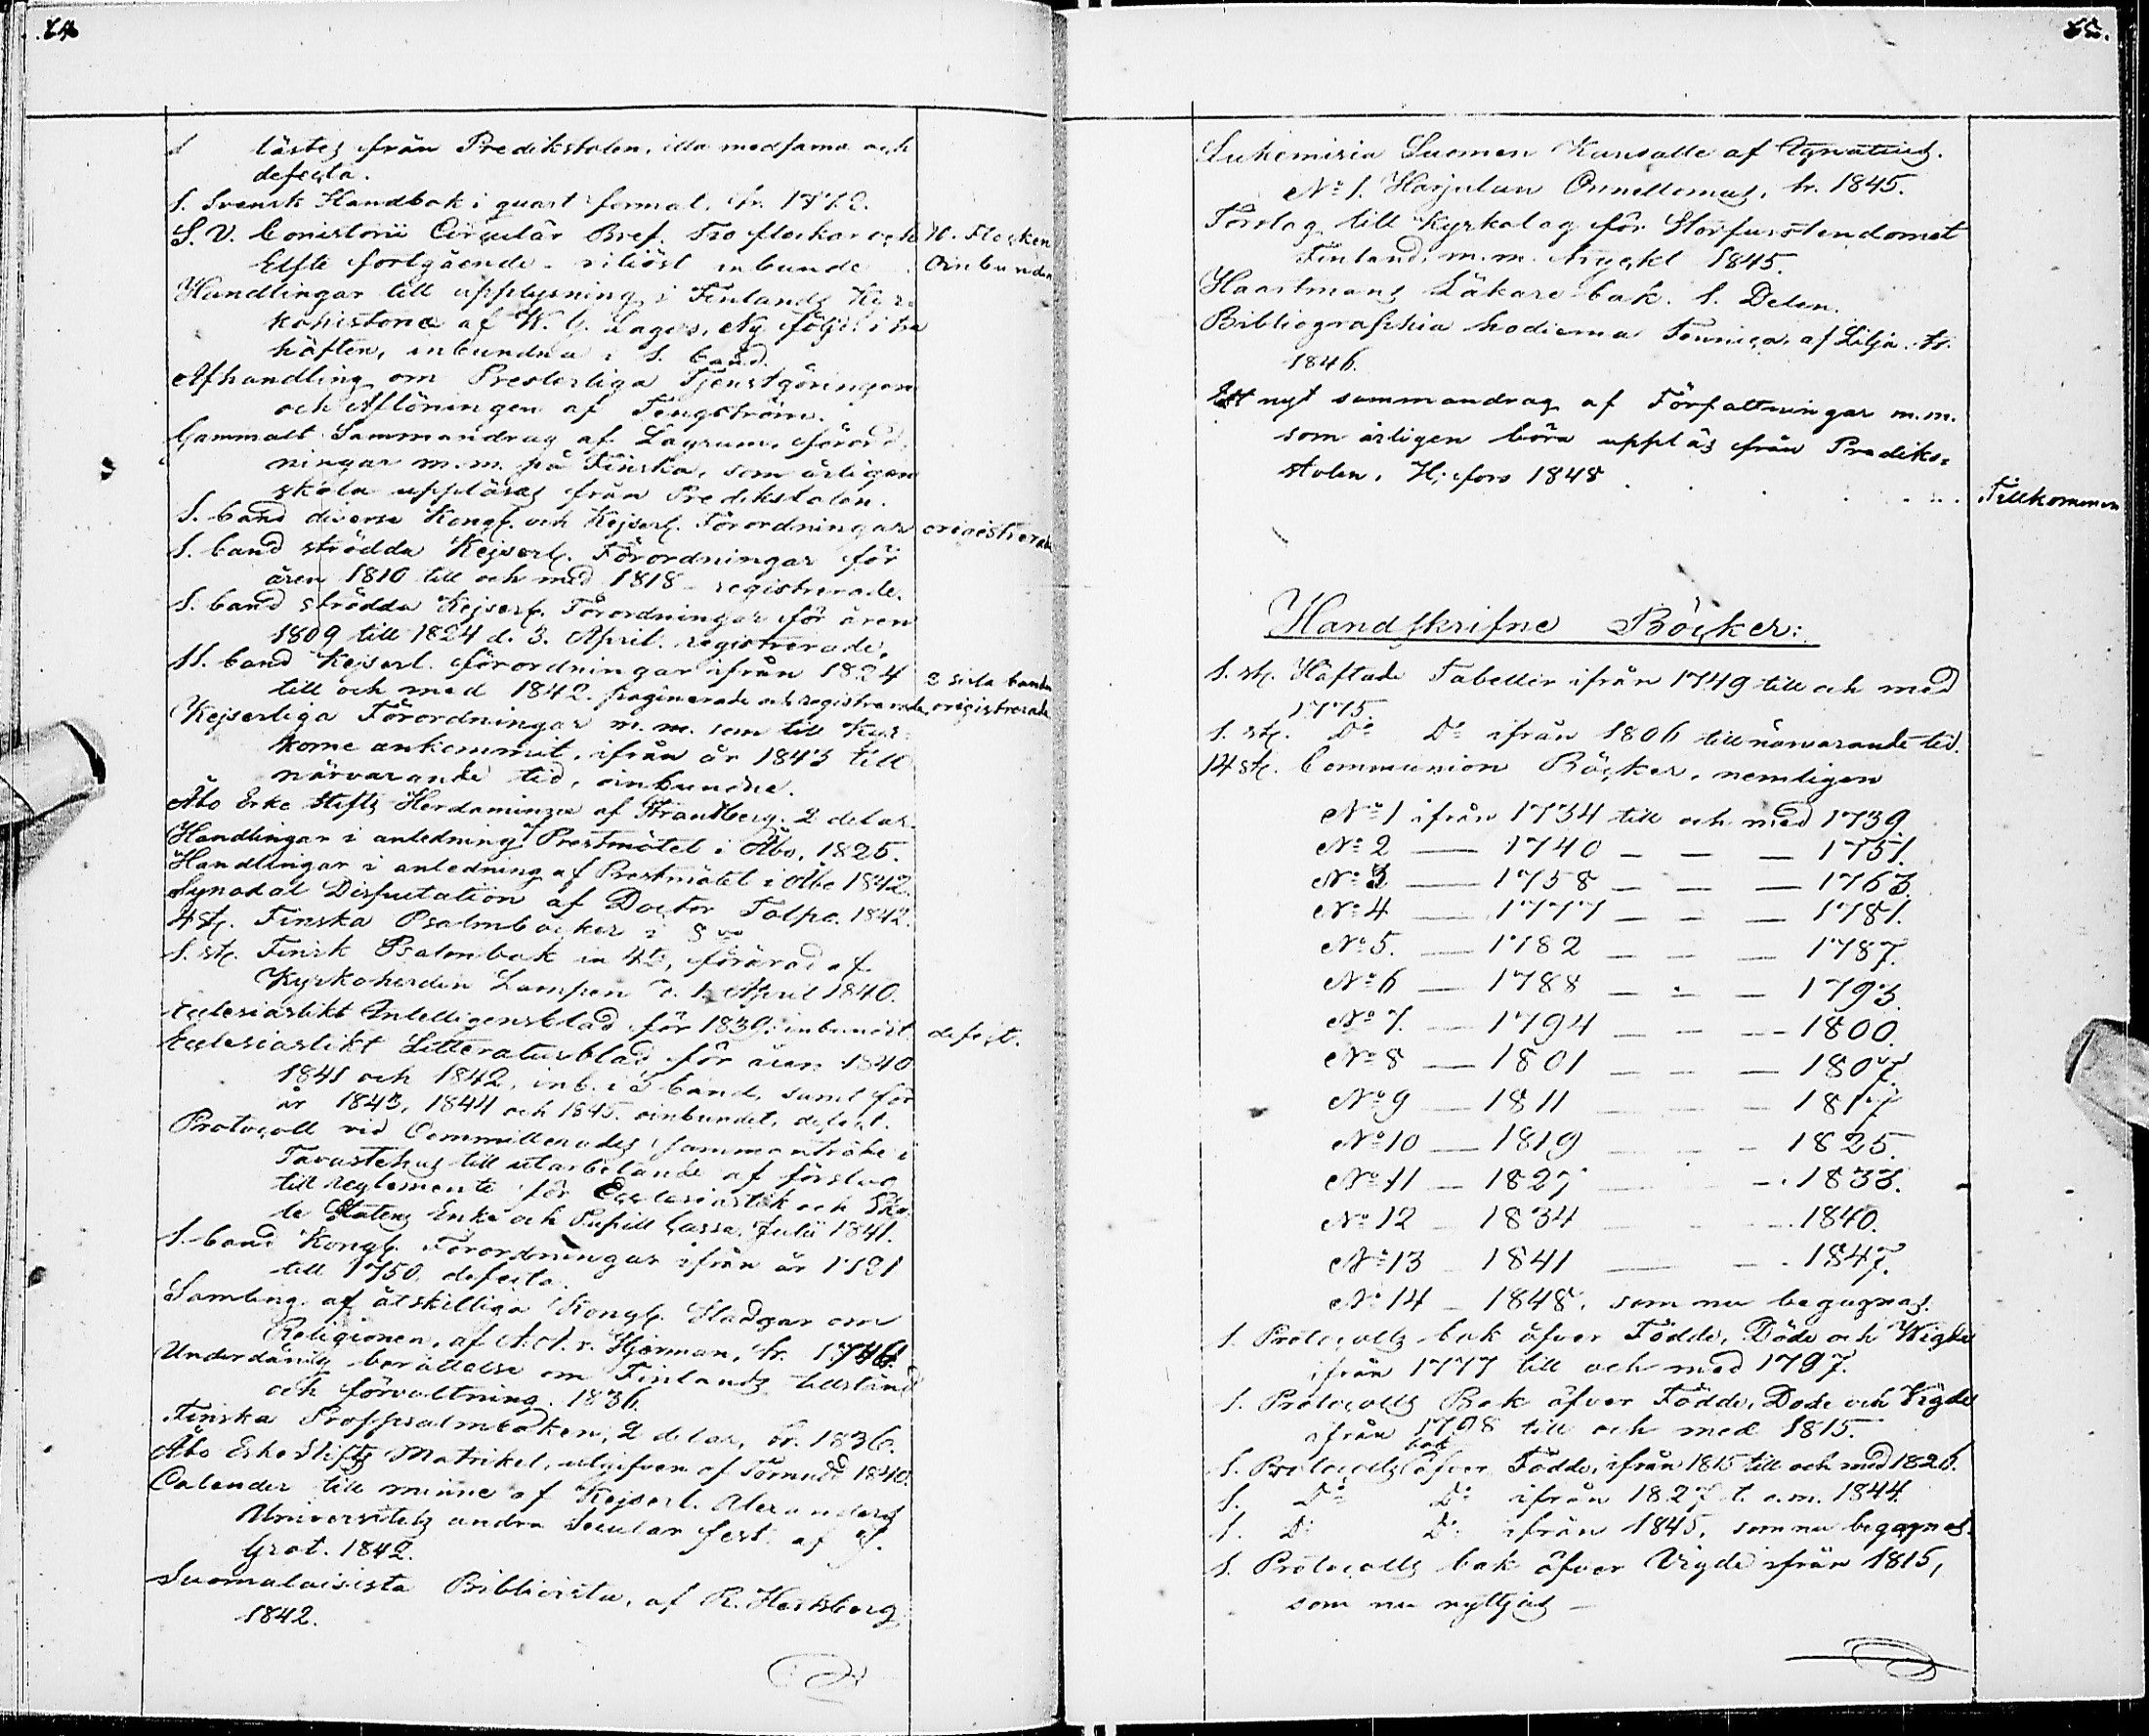 24.
läses från Predikstolen, illa medfarna och
defecta.
1. Svensk Handbok i quart format, tr. 1772.
S. V. Consistorii Circulär Bref. Tio flockar och
Elfte fortgående
inbunde
11. Flocken
Oinbunden
Handlingar till upplysning i Finlands Kyr-
kohistoria af W. G. Lagus, Ny följd i
häften, inbundna i 1. band.
Afhandling om Presterliga Tjenstgöringen
och Aflöningen af Tengström.
Gammalt Sammandrag af Lagrum, förord-
ningar m.m. på Finska, som årligen
skola uppläsas från Predikstolen.
1. band diverse Kongl. och Kejserl. Förordningar
oregistrerade
1. band strödda Kejserl. Förordningar för
åren 1810 till och med 1818 - registrerade.
1. band strödda Kejserl. Förordningar för åren
1809 till 1824 d. 3. April. registrerade,
11. band Kejserl. förordningar ifrån 1824
till och med 1842. paginerade och registrerade,
2 sista banden
oregistrerade
Kejserliga Förordningar m.m. som till Kyr-
korne ankommit, ifrån år 1843 till
närvarande tid, oinbundna.
Åbo Erke Stifts Herdaminne af Strandberg. 2 delar.
Handlingar i anledning af Prestmötet i Åbo, 1825.
Handlingar i anledning af Prestmötet i Åbo 1842.
Synodal Disputation af Doctor Tolpo. 1842.
4 st. Finska Psalmböcker i 8vo
1. st. Finsk Psalmbok in 4to, förärad af
Kyrkoherden Lampen d. 1. April 1840.
Ecclesiastikt Intelligensblad för 1839. inbundet
defect.
Ecclesiastikt Litteraturblad för åren 1840
1841 och 1842, inb. i 3 band, samt för
år 1843, 1844 och 1845. oinbundet, defect.
Protocoll vid Committerades sammanträde i
Tavastehus till utarbetande af förslag
till reglemente för Ecclesiastik och Sko-
le Statens Enke och Pupill Cassa. Julii 1841.
1. band Kongl. Förordningar ifrån år 1721
till 1750. defecta.
Samling af åtskilliga Kongl. Stadgar om
Religionen, af A. A. v. Stjernman, tr.
Underdånig berättelse om Finlands tillstånd
och förvaltning. 1836.
Finska Profpsalmboken, 2 delar, tr. 1836.
Åbo Erke Stifts Matrikel, utgifven af Törnudd 1840.
Calender till minne af Kejserl. Alexanders
Universitets andra Secular fest. af J.
Grot. 1842.
Suomalaisista Biblioista, af R. Hertzberg
1842.
25.
Lukemisia Suomen Kansalle af Ignatius.
No 1. Harjulan Onnettomus, tr. 1845.
Förslag till Kyrkolag för Storfurstendömet
Finland, m.m. tryckt 1845.
Haartmans Läkare bok. 1. Delen.
Bibliographia hodierna Fennica, af Lilja. tr.
1846.
Ett nyt sammandrag af Författningar m.m.
som årligen böra uppläs från Predik-
stolen. H:fors 1848
Tillkommen
Handskrifne Böcker:
1. st. Häftade Tabeller ifrån 1749 till och med
1775.
1. st. Do Do ifrån 1806 till närvarande tid.
14 st. Communion Böcker, nemligen
No 1 ifrån 1734 till och med 1739.
No 2 — 1740 — — — 1751.
No 3 — 1758 — — — 1763.
No 4 — 1777 — — — 1781.
No 5. — 1782 — — — 1787.
No 6 — 1788 — — — 1793.
No 7. — 1794 — — — 1800.
No 8 — 1801 — — — 1807.
No 9 — 1811 — — — 1817
No 10 — 1819 — — — 1825.
No 11 — 1827 — — 1833.
No 12 — 1834 — — 1840.
No 13 — 1841 — — 1847.
No 14 — 1848, som nu begagnas.
1. Protocolls bok öfver Födde, Döde och Wigde
ifrån 1777 till och med 1797.
1. Protocolls Bok öfver Födde, Döde och Vigde
ifrån 1798 till och med 1815.
1. Protocolls bok öfver Födde, ifrån 1815 till och med 1826.
1. Do Do ifrån 1827 t. o. m. 1844.
1. Do Do ifrån 1845, som nu begagnas.
1. Protocolls bok öfver Vigde ifrån 1815,
som nu nyttjas —